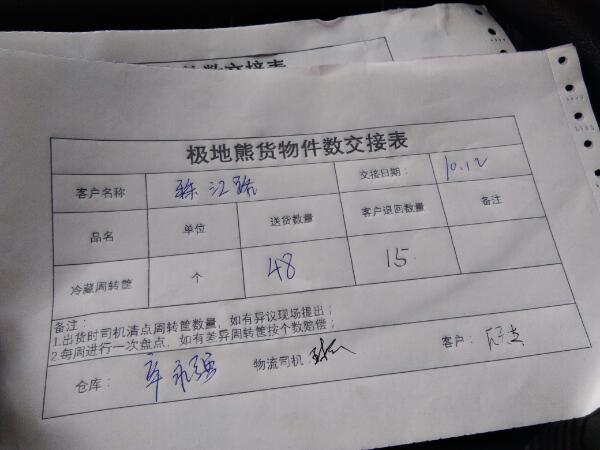 数交接表
极地熊货物件数交接表
客户名称 江路 交接日期： 10.12
品名 单位 送货数量 客户退回数量 备注
冷藏周转筐 个 48 15
备注：
1.出货时司机清点周转筐数量，如有异议现场提出；
2.每周进行一次盘点，如有差异周转筐按个数赔偿；
仓库： 辛永强 物流司机 客户：